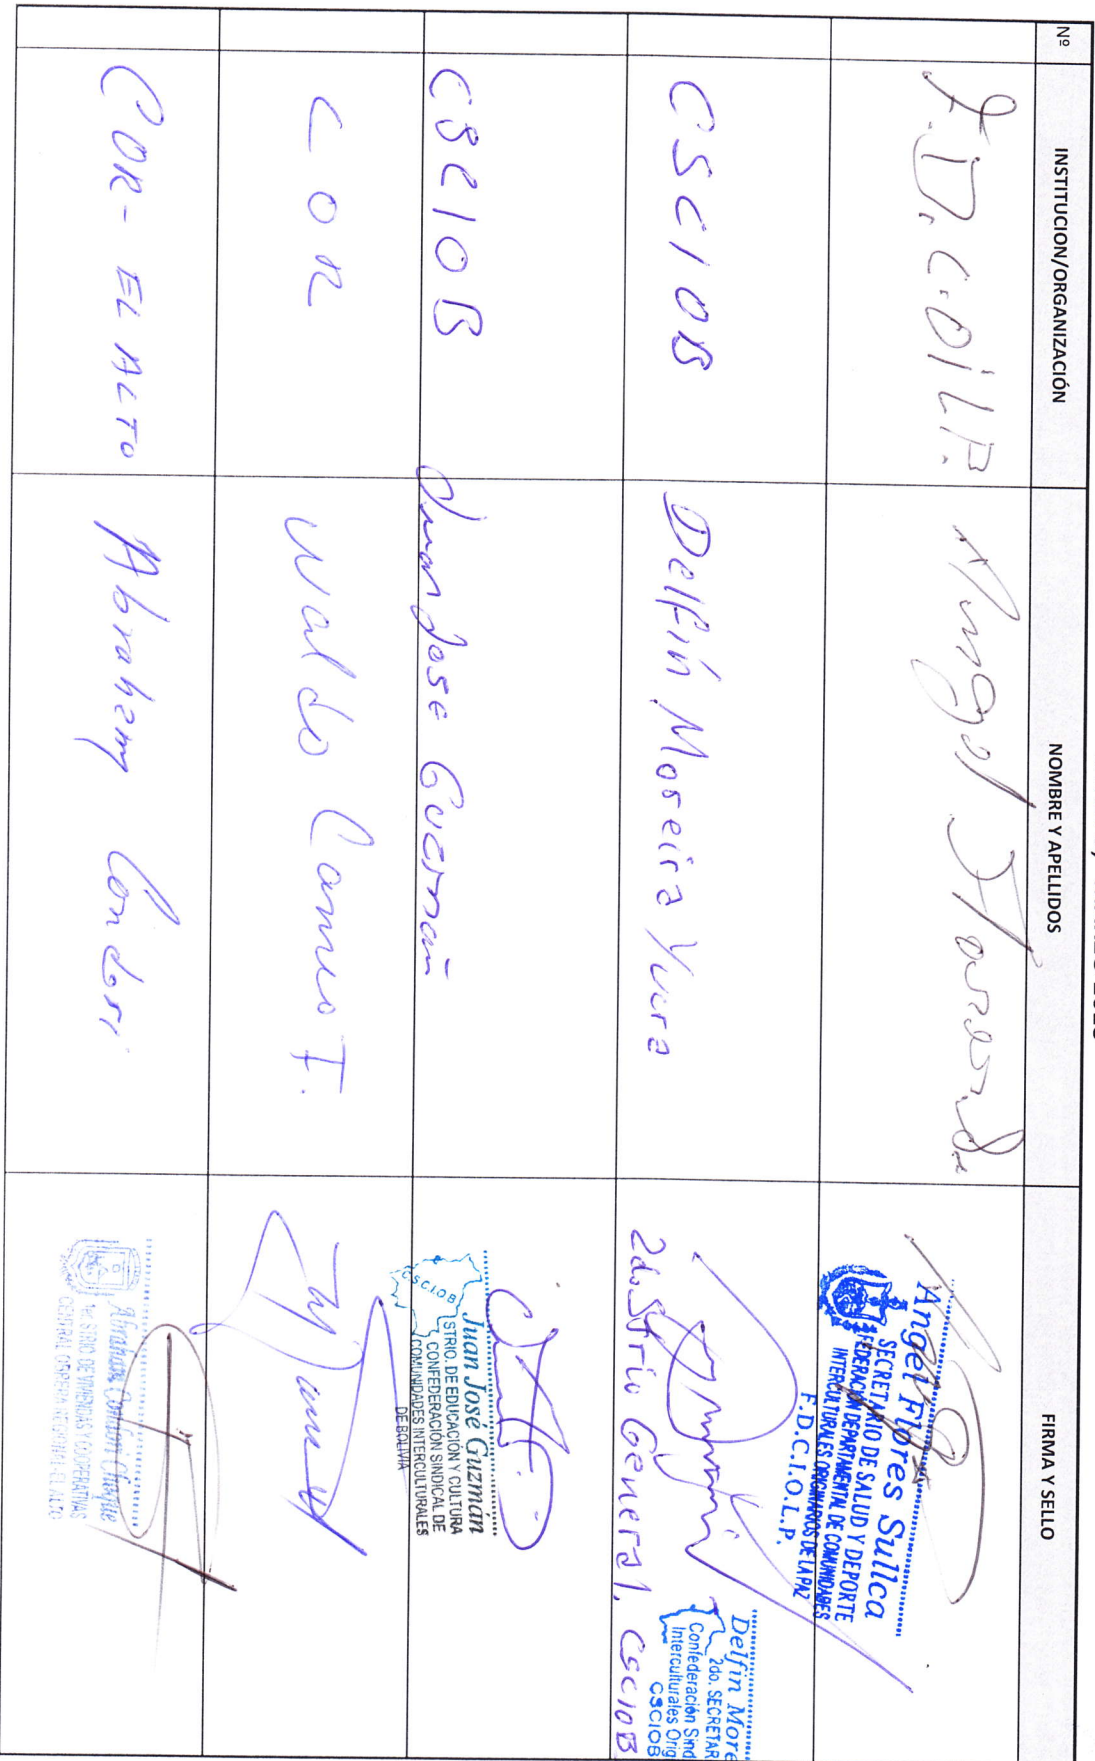 Nº INSTITUCION/ORGANIZACIÓN NOMBRE Y APELLIDOS FIRMA Y SELLO
F.D.C.OILP. Angel
Angel Flores Sullca
SECRETARIO DE SALUD Y DEPORTE
FEDERACIÓN DEPARTAMENTAL DE COMUNIDADES
INTERCULTURALES ORIGINARIOS DE LA PAZ
F.D.C.I.O.L.P.
CSCIOB Delfín Moreira Yucra
2do. Strio General, CSCIOB
Delfín More
2do. SECRETAR
Confederación Sind
Interculturales Orig
CSCIOB
CSCIOB Juan Jose Guzmán
CSCIOB
Juan José Guzmán
STRIO. DE EDUCACIÓN Y CULTURA
CONFEDERACIÓN SINDICAL DE
COMUNIDADES INTERCULTURALES
DE BOLIVIA
COR Waldo
COR - EL ALTO Abraham Condori
Abraham Condori
STRIO. DE VIVIENDAS Y COOPERATIVAS
CENTRAL OBRERA REGIONAL - EL ALTO